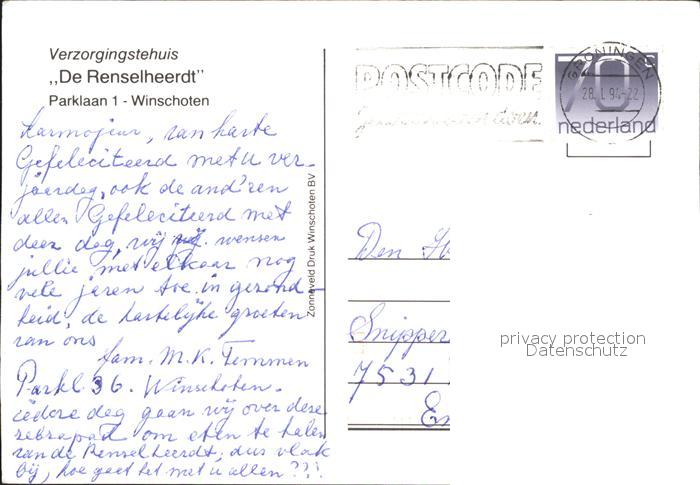 Verzorgingstehuis
,,De Renselheerdt"
Parklaan 1 - Winschoten
van harte
Gefeleciteerd met u ver-
jaardag, ook de and'ren
allen Gefeleciteerd met
deez dag, wij wensen
jullie met elkaar nog
vele jaren toe in gezond-
heid, de hartelijke groeten
van ons
fam. M.K. Temmen
Parkl 36. Winschoten.
iedere dag gaan wij over deze
zebrapad om eten te halen
van de Renselheerdt, dus vlak
bij, hoe gaet het met u allen ???
Zonneveld Druk Winschoten BV
POSTCODE
GRONINGEN
28.1.94-22
70 c
nederland
Den
Snipper
7531
En
privacy protection
Datenschutz